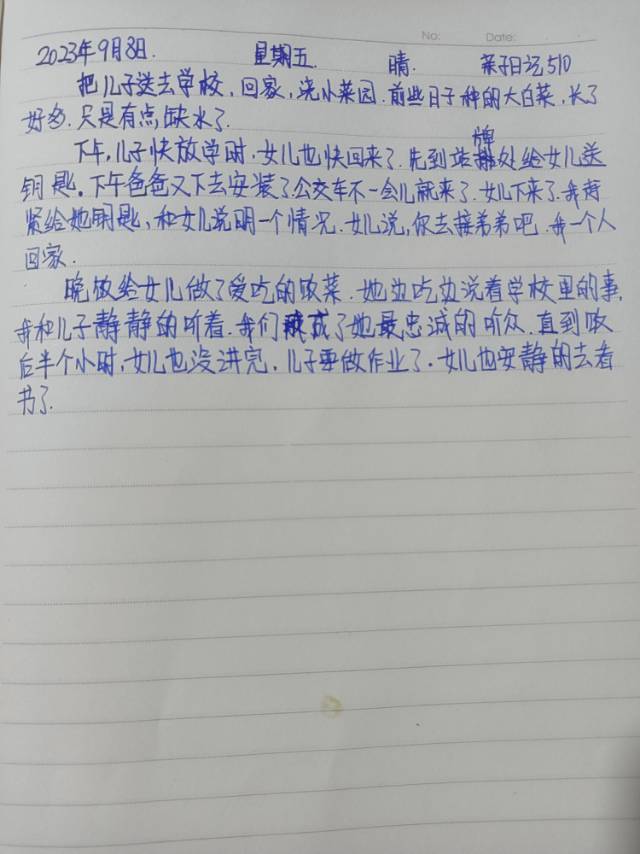 No: Date:
2023年9月8日. 星期五. 晴. 亲子日记510
把儿子送去学校，回家，浇小菜园.前些日子种的大白菜，长了
好多.只是有点缺水了.
下午，儿子快放学时.女儿也快回来了.先到站牌处给女儿送
钥匙。下午爸爸又下去安装了.公交车不一会儿就来了.女儿下来了.我赶
紧给她钥匙，和女儿说明一个情况.女儿说，你去接弟弟吧.我一个人
回家.
晚饭给女儿做了爱吃的饭菜.她边吃边说着学校里的事,
我和儿子静静的听着.我们成了她最忠诚的听众.直到饭
后半个小时，女儿也没讲完，儿子要做作业了.女儿也安静的去看
书了.